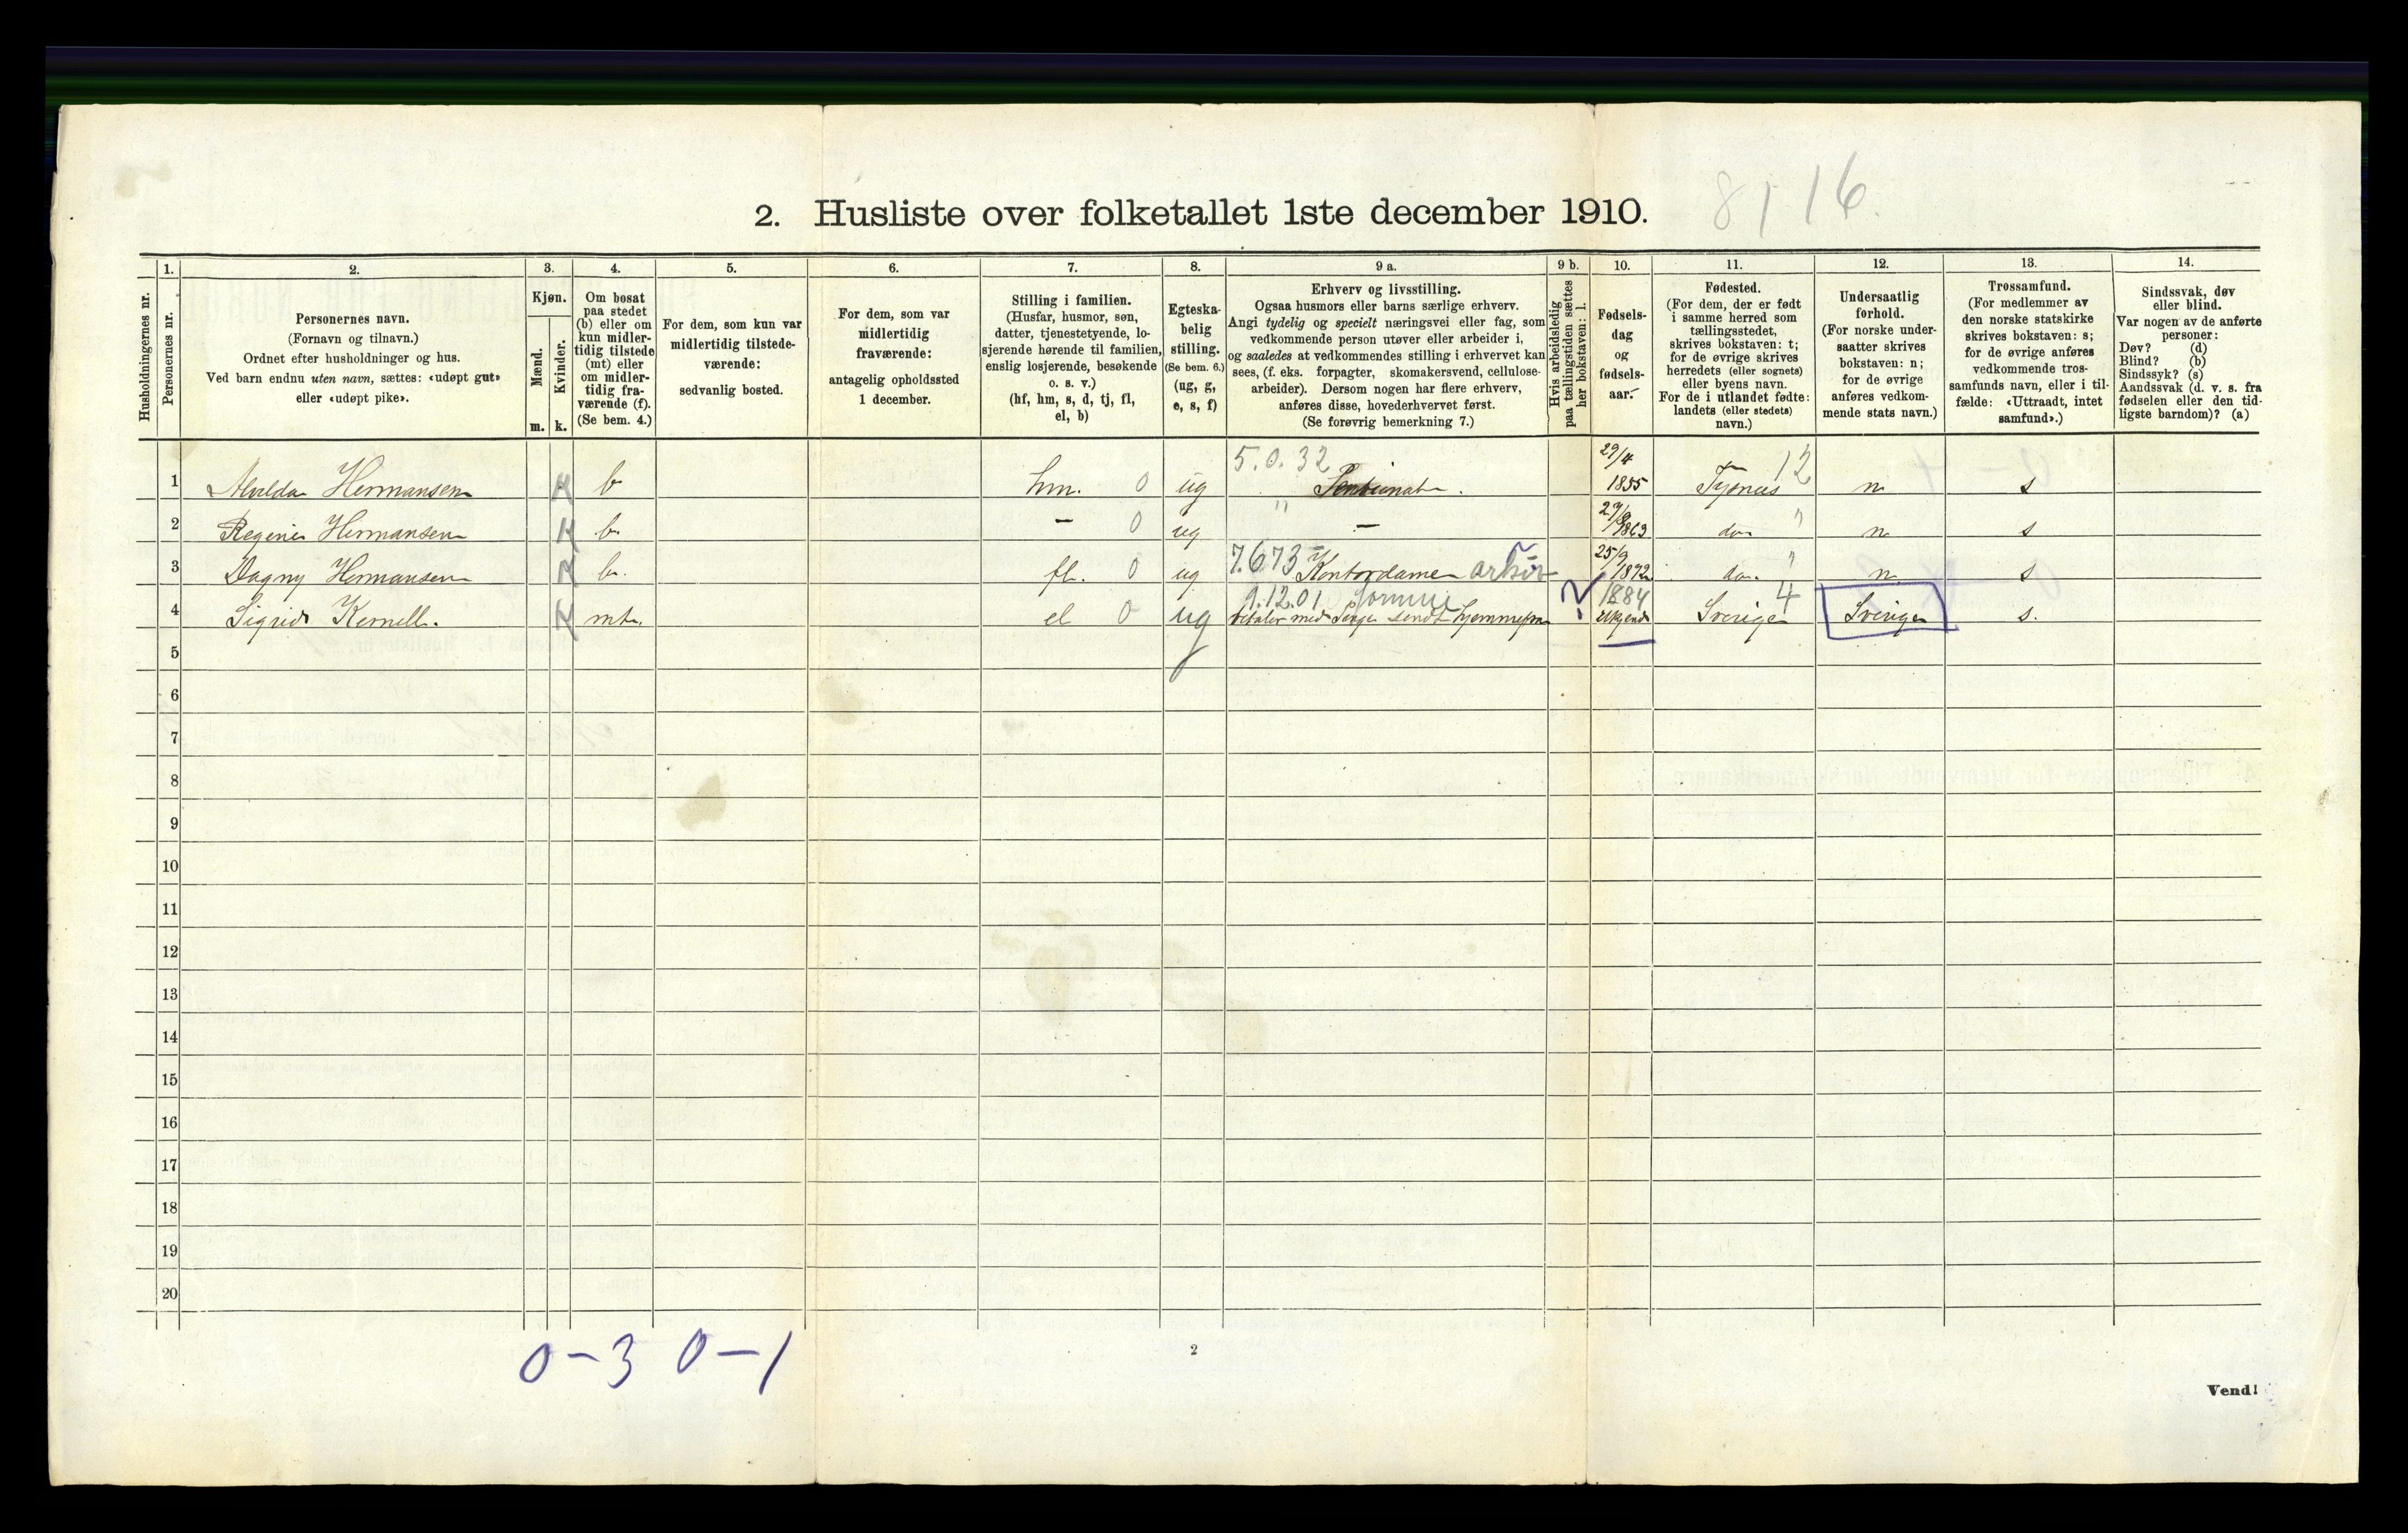 2. Husliste over folketallet 1ste december 1910.
8116.
Husholdningernes nr.
1.
Personernes nr.
2.
Personernes navn.
(Fornavn og tilnavn.)
Ordnet efter husholdninger og hus.
Ved barn endnu uten navn, sættes: «udøpt gut»
eller «udøpt pike».
3.
Kjøn.
Mænd.
m.
Kvinder.
k.
4.
Om bosat
paa stedet
(b) eller om
kun midler-
tidig tilstede
(mt) eller
om midler-
tidig fra-
værende (f).
(Se bem. 4.)
5.
For dem, som kun var
midlertidig tilstede-
værende:
sedvanlig bosted.
6.
For dem, som var
midlertidig
fraværende:
antagelig opholdssted
1 december.
7.
Stilling i familien.
(Husfar, husmor, søn,
datter, tjenestetyende, lo-
sjerende hørende til familien,
enslig losjerende, besøkende
o. s. v.)
(hf, hm, s, d, tj, fl,
el, b)
8.
Egteska-
belig
stilling.
(Se bem. 6.)
(ug, g,
e, s, f)
9 a.
Erhverv og livsstilling.
Ogsaa husmors eller barns særlige erhverv.
Angi tydelig og specielt næringsvei eller fag, som
vedkommende person utøver eller arbeider i,
og saaledes at vedkommendes stilling i erhvervet kan
sees, (f. eks. forpagter, skomakersvend, cellulose-
arbeider). Dersom nogen har flere erhverv,
anføres disse, hovederhvervet først.
(Se forøvrig bemerkning 7.)
9 b.
Hvis arbeidsledig
paa tællingstiden sættes
her bokstaven: l.
10.
Fødsels-
dag
og
fødsels-
aar.
11.
Fødested.
(For dem, der er født
i samme herred som
tællingsstedet,
skrives bokstaven: t;
for de øvrige skrives
herredets (eller sognets)
eller byens navn.
For de i utlandet fødte:
landets (eller stedets)
navn.)
12.
Undersaatlig
forhold.
(For norske under-
saatter skrives
bokstaven: n;
for de øvrige
anføres vedkom-
mende stats navn.)
13.
Trossamfund.
(For medlemmer av
den norske statskirke
skrives bokstaven: s;
for de øvrige anføres
vedkommende tros-
samfunds navn, eller i til-
fælde: «Uttraadt, intet
samfund».)
14.
Sindssvak, døv
eller blind.
Var nogen av de anførte
personer:
Døv? (d)
Blind? (b)
Sindssyk? (s)
Aandssvak (d. v. s. fra
fødselen eller den tid-
ligste barndom)? (a)
5.0.32 29/4 12
1 Alvilda Hermansen b hm. 0 ug Pensionat. 1855 Tysnæs n s
2 Regine Hermansen b — 0 ug " — 1863 do n s
7.673 25/9
3 Dagny Hermansen b. fl. 0 ug Kontordame 1872 do. n s
9.12.01 ? 1884 4
4 Sigrid Kernell. mt. el 0 ug betaler med Penge sendt hjemmefra Ukjendt Sverige Sverige s.
5
6
7
8
9
10
11
12
13
14
15
16
17
18
19
20
0 – 3 0 – 1
2
Vend!